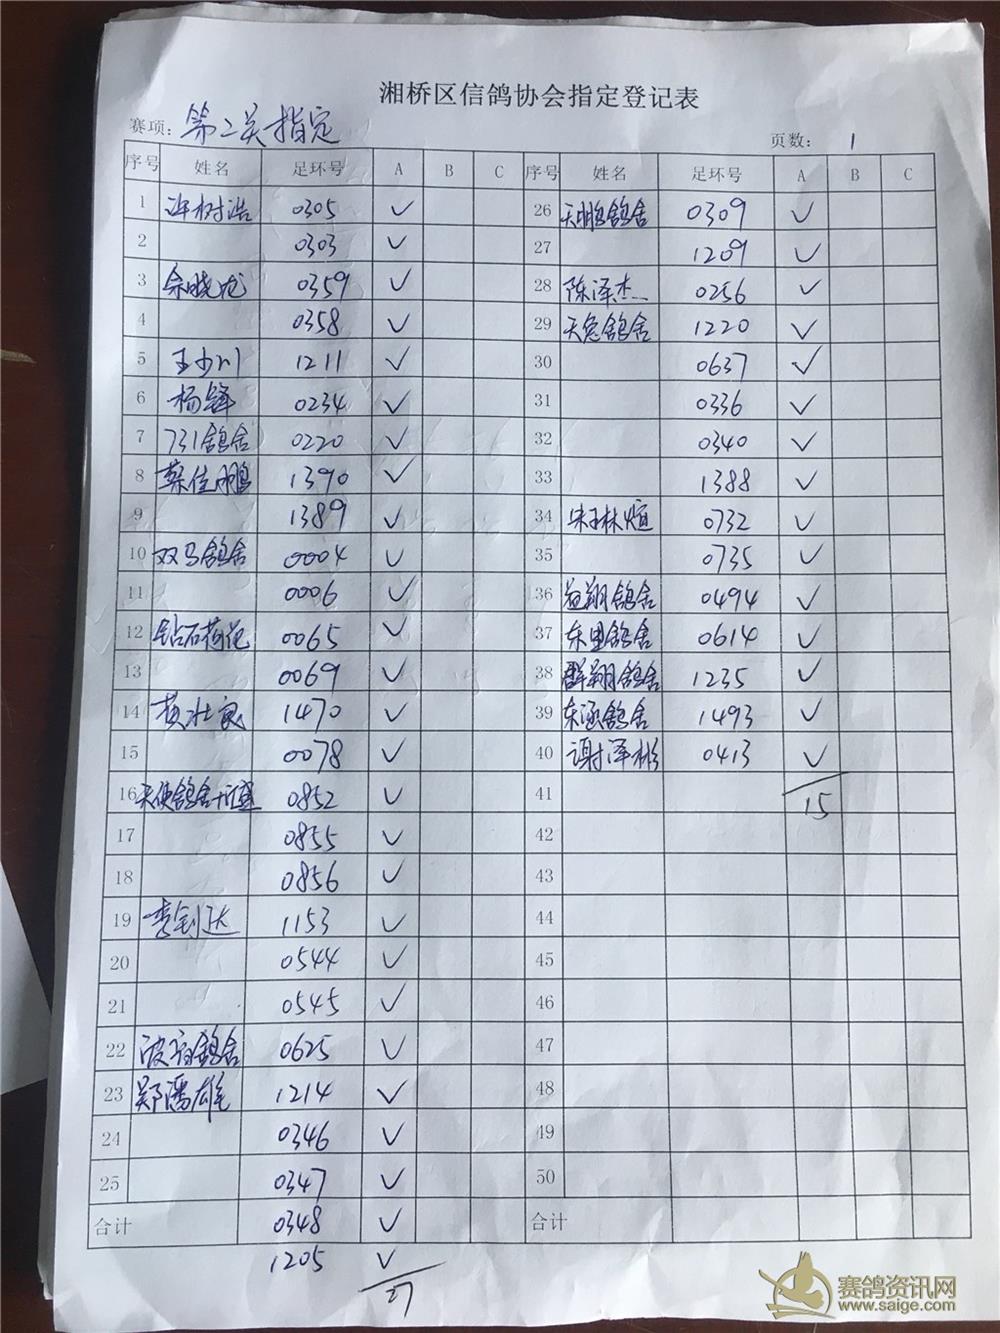 湘桥区信鸽协会指定登记表
赛项: 第二关指定 页数: 1
序号 姓名 足环号 A B C 序号 姓名 足环号 A B C
1 许树浩 0305 ✓ 26 天鹏鸽舍 0309 ✓
2 0303 ✓ 27 1209 ✓
3 余晓龙 0359 ✓ 28 陈泽杰 0256 ✓
4 0358 ✓ 29 天兔鸽舍 1220 ✓
5 王少川 1211 ✓ 30 0637 ✓
6 杨锋 0234 ✓ 31 0336 ✓
7 731鸽舍 0220 ✓ 32 0340 ✓
8 蔡佳鹏 1390 ✓ 33 1388 ✓
9 1389 ✓ 34 林煊 0732 ✓
10 双马鸽舍 0004 ✓ 35 0735 ✓
11 0006 ✓ 36 益翔鸽舍 0494 ✓
12 钻石荷花 0065 ✓ 37 东里鸽舍 0614 ✓
13 0069 ✓ 38 群翔鸽舍 1235 ✓
14 黄壮良 1470 ✓ 39 东涵鸽舍 1493 ✓
15 0078 ✓ 40 谢泽彬 0413 ✓
16 天使鸽舍 0852 ✓ 41 15
17 0855 ✓ 42
18 0856 ✓ 43
19 李钊达 1153 ✓ 44
20 0544 ✓ 45
21 0545 ✓ 46
22 鸽舍 0625 ✓ 47
23 郑雄 1214 ✓ 48
24 0346 ✓ 49
25 0347 ✓ 50
合计 0348 ✓ 合计
1205 ✓
27
赛鸽资讯网
www.saige.com